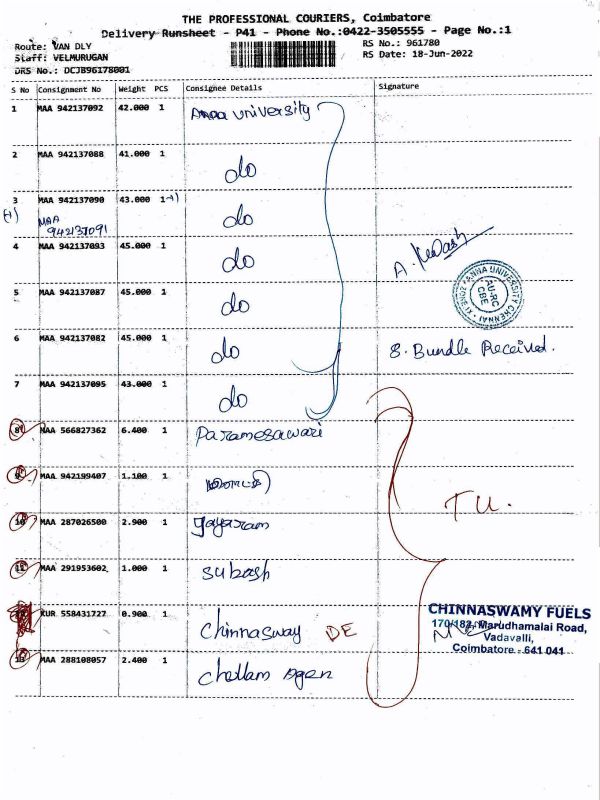 THE PROFESSIONAL COURIERS, Coimbatore
Delivery Runsheet - P41 - Phone No.:0422-3505555 - Page No.:1
Route: VAN DLY
RS No.: 961780
Staff: VELMURUGAN
RS Date: 18-Jun-2022
DRS No.: DCJB96178001
S No Consignment No Weight PCS Consignee Details Signature
1 MAA 942137092 42.000 1 Anna University
2 MAA 942137088 41.000 1 do
3 MAA 942137090 43.000 1 +1) do
(+1) MAA 942137091
4 MAA 942137093 45.000 1 do
ANNA UNIVERSITY CHENNAI
AU-RC
CBE
5 MAA 942137087 45.000 1 do
6 MAA 942137082 45.000 1 do 8. Bundle Received.
7 MAA 942137095 43.000 1 do
8 MAA 566827362 6.400 1 Paramesawari
9 MAA 942199407 1.100 1
T U.
10 MAA 287026500 2.900 1 Jayaram
11 MAA 291953602 1.000 1 Subash
KUR 558431727 0.900 1 Chinnasway DE
CHINNASWAMY FUELS
170/182, Marudhamalai Road,
Vadavalli,
Coimbatore - 641 041
13 MAA 288108057 2.400 1 Chellam Agen